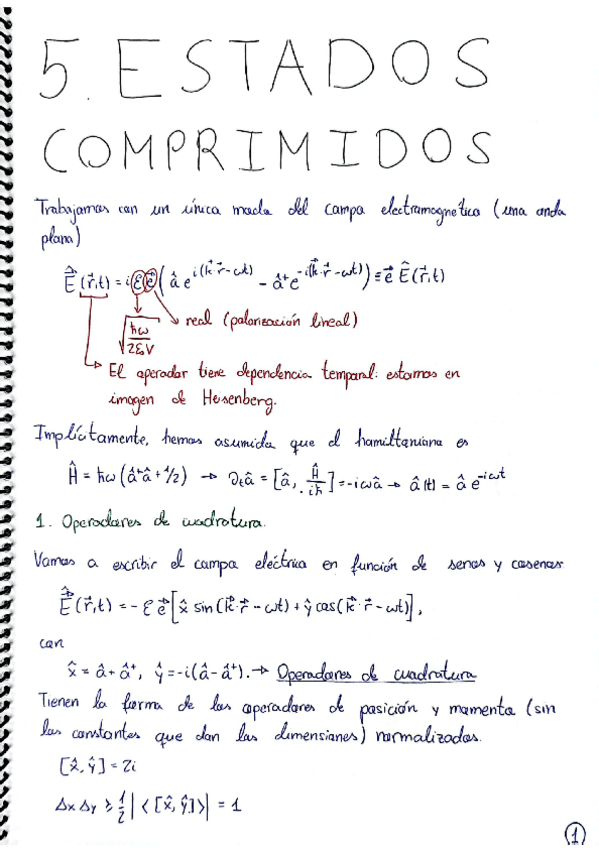 5. ESTADOS
COMPRIMIDOS
Trabajamos con un único modo del campo electromagnético (una onda
plana)
$\hat{\vec{E}}(\vec{r},t) = i\mathcal{E}\vec{e}\left(\hat{a}e^{i(\vec{k}\cdot\vec{r}-\omega t)} - \hat{a}^{+}e^{-i(\vec{k}\cdot\vec{r}-\omega t)}\right) \equiv \vec{e}\,\hat{E}(\vec{r},t)$
$\sqrt{\frac{\hbar\omega}{2\varepsilon_0 V}}$ → real (polarización lineal)
→ El operador tiene dependencia temporal: estamos en
imagen de Heisenberg.
Implícitamente, hemos asumido que el hamiltoniano es
$\hat{H} = \hbar\omega(\hat{a}^{+}\hat{a} + 1/2) \rightarrow \partial_t\hat{a} = [\hat{a}, \frac{\hat{H}}{i\hbar}] = -i\omega\hat{a} \rightarrow \hat{a}(t) = \hat{a}\,e^{-i\omega t}$
1. Operadores de cuadratura.
Vamos a escribir el campo eléctrico en función de senos y cosenos
$\hat{\vec{E}}(\vec{r},t) = -\mathcal{E}\vec{e}\left[\hat{x}\sin(\vec{k}\cdot\vec{r}-\omega t) + \hat{y}\cos(\vec{k}\cdot\vec{r}-\omega t)\right],$
con
$\hat{x} = \hat{a}+\hat{a}^{+},\ \hat{y} = -i(\hat{a}-\hat{a}^{+}).$ → Operadores de cuadratura
Tienen la forma de los operadores de posición y momento (sin
las constantes que dan las dimensiones) normalizados.
$[\hat{x},\hat{y}] = 2i$
$\Delta x\,\Delta y \geq \frac{1}{2}|\langle[\hat{x},\hat{y}]\rangle| = 1$
1